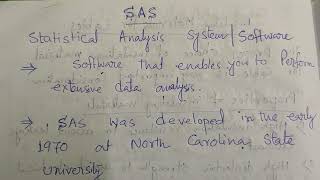 SAS
Statistical Analysis System/Software
⇒ Software that enables you to Perform
extensive data analysis.
⇒ SAS was developed in the early
1970 at North Carolina State
University